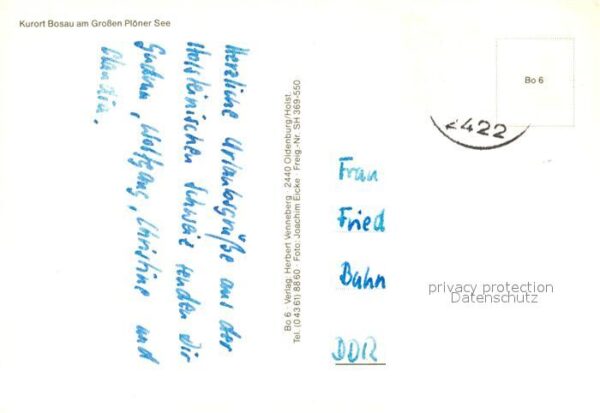 Kurort Bosau am Großen Plöner See
Herzliche Urlaubsgrüße aus der
Holsteinischen Schweiz senden Dir
Gudrun, Wolfgang, Christine und
Claudia.
Bo 6 · Verlag Herbert Venneberg · 2440 Oldenburg/Holst.
Tel. (0 43 61) 88 60 · Foto: Joachim Eicke · Freig.-Nr. SH 369-550
Bo 6
2422
Frau
Fried
Bahn
DDR
privacy protection
Datenschutz